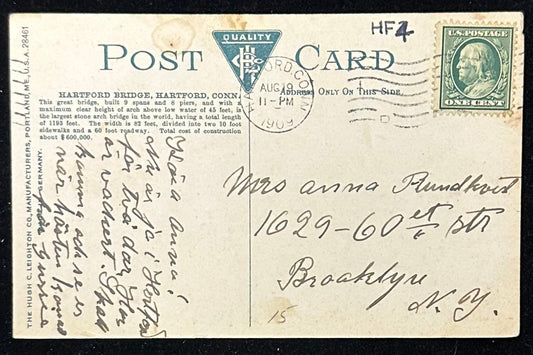 HF4
U.S. POSTAGE
ONE CENT
POST CARD
QUALITY
HARTFORD, CONN.
AUG 19
11-PM
1909
HARTFORD BRIDGE, HARTFORD, CONN.
ADDRESS ONLY ON THIS SIDE.
This great bridge, built 9 spans and 8 piers, and with a
maximum clear height of arch above low water of 45 feet, is
the largest stone arch bridge in the world, having a total length
of 1193 feet. The width is 82 feet, divided into two 10 foot
sidewalks and a 60 foot roadway. Total cost of construction
about $600,000.
THE HUGH C. LEIGHTON CO., MANUFACTURERS, PORTLAND, ME., U.S.A. 28461
GERMANY.
Kära Anna!
Nu är ja i Hartford
för två dar, Har
är vackert. Skall
komma och se er
när hösten
från Gurra
Mrs Anna Rundkvist
1629-60 et str
Brooklyn
N.Y.
15